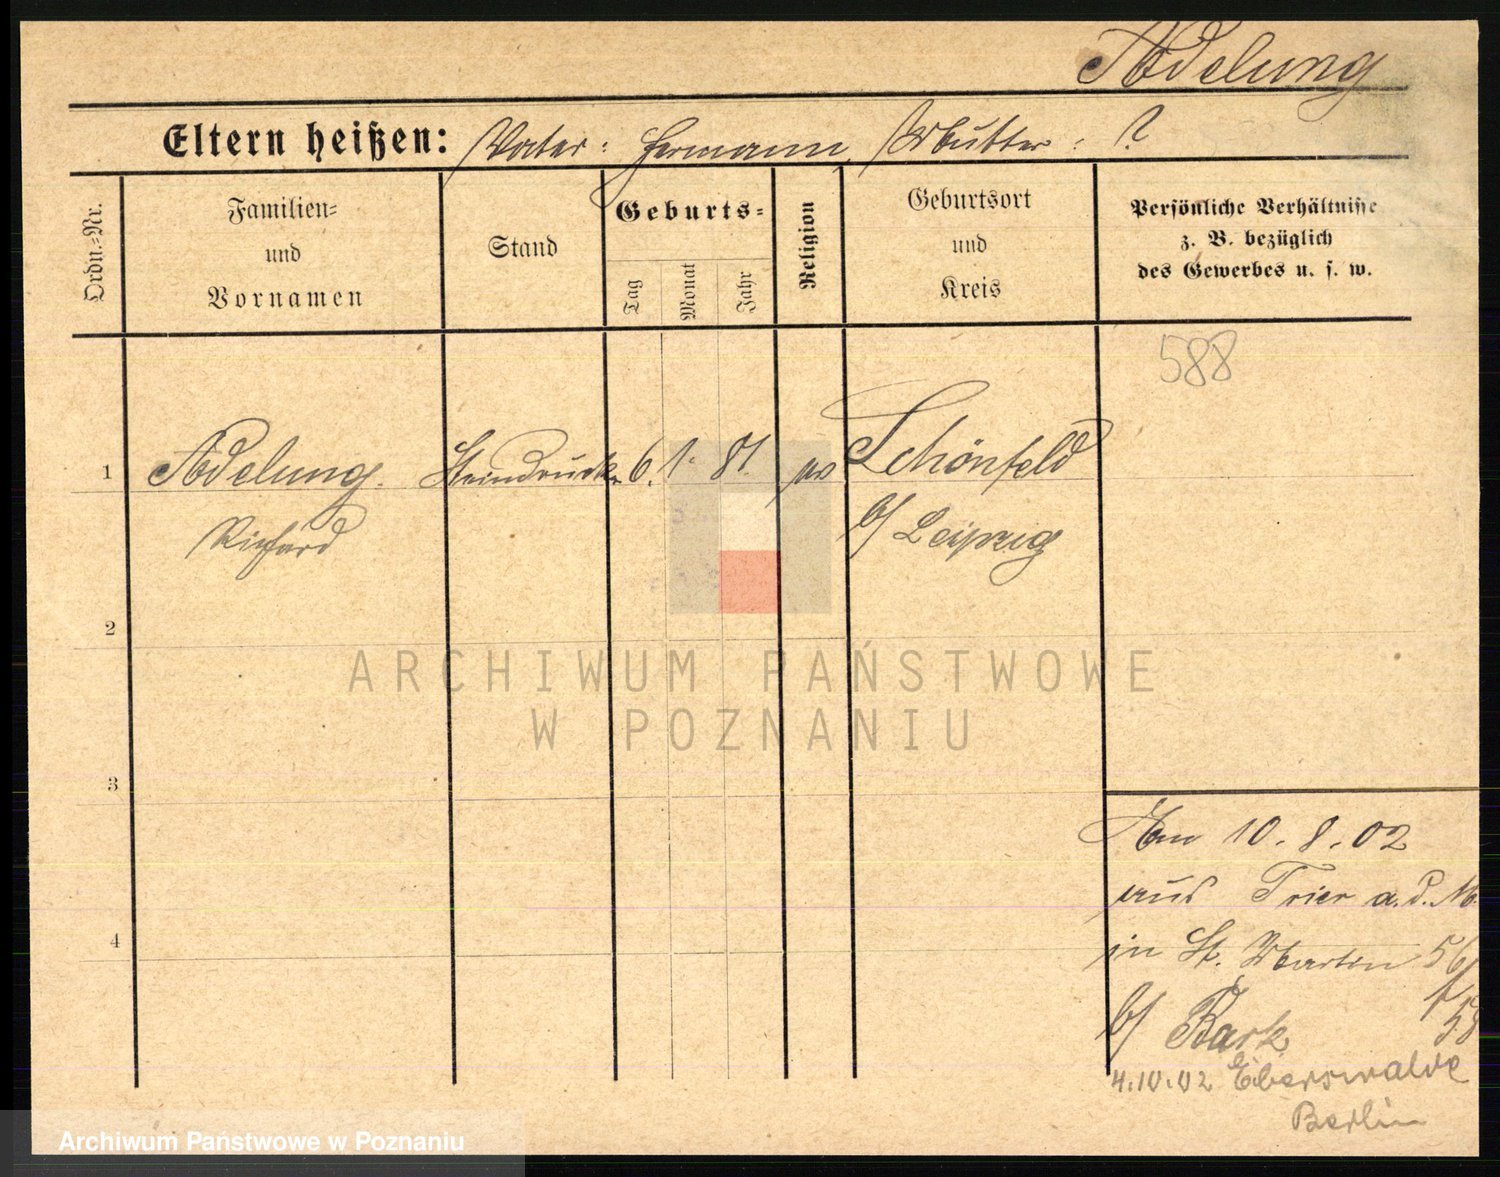 Adelung
Eltern heißen: Vater: Hermann, Mutter: ?
Ordn.-Nr.
Familien-
und
Vornamen
Stand
Geburts-
Tag
Monat
Jahr
Religion
Geburtsort
und
Kreis
Persönliche Verhältnisse
z. B. bezüglich
des Gewerbes u. s. w.
588
1 Adelung. Steindruck. 6. 1. 81. Schönfeld
Richard b/ Leipzig
2
3
4
ARCHIWUM PAŃSTWOWE
W POZNANIU
Am 10.8.02
aus Trier a. d. M.
in St. Martin 56
b/ Bark 58
4.10.02 Eberswalde
Berlin
Archiwum Państwowe w Poznaniu